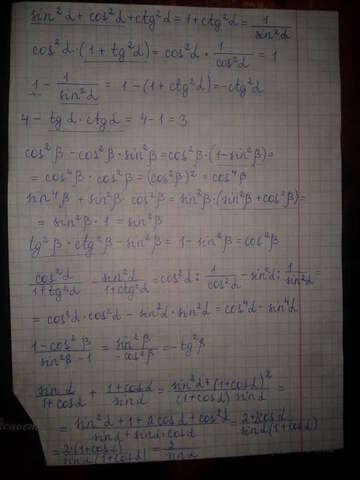 sin²α + cos²α + ctg²α = 1 + ctg²α = 1/sin²α
cos²α · (1 + tg²α) = cos²α · 1/cos²α = 1
1 - 1/sin²α = 1 - (1 + ctg²α) = -ctg²α
4 - tgα · ctgα = 4 - 1 = 3
cos²β - cos²β · sin²β = cos²β · (1 - sin²β) =
= cos²β · cos²β = (cos²β)² = cos⁴β
sin⁴β + sin²β · cos²β = sin²β · (sin²β + cos²β) =
= sin²β · 1 = sin²β
tg²β · ctg²β - sin²β = 1 - sin²β = cos²β
cos²α/1+tg²α - sin²α/1+ctg²α = cos²α : 1/cos²α - sin²α : 1/sin²α =
= cos²α · cos²α - sin²α · sin²α = cos⁴α - sin⁴α
1-cos²β/sin²β-1 = sin²β/-cos²β = -tg²β
sinα/1+cosα + 1+cosα/sinα = sin²α+(1+cosα)²/(1+cosα)sinα =
= sin²α+1+2cosα+cos²α/sinα+sinα·cosα = 2+2cosα/sinα(1+cosα) =
= 2(1+cosα)/sinα(1+cosα) = 2/sinα